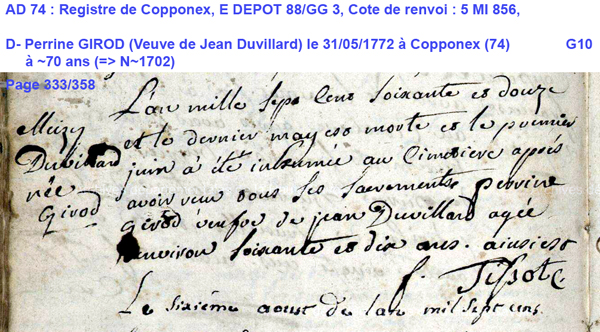 AD 74 : Registre de Copponex, E DEPOT 88/GG 3, Cote de renvoi : 5 MI 856,
D- Perrine GIROD (Veuve de Jean Duvillard) le 31/05/1772 à Copponex (74) G10
à ~70 ans (=> N~1702)
Page 333/358
L'an mille sept Cens Soixante et douze
et le dernier may est morte et le premier
juin à été inhumée au Cimetiere après
avoir reçu tous les sacrements perrine
girod veufve de jean Duvillard agée
environ Soixante et dix ans. ainsi est
Duvillard
née
Girod
Le sixième aoust de l'an mil sept cens